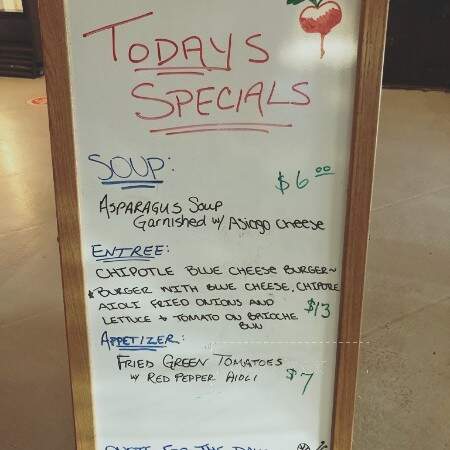 TODAYS
SPECIALS
SOUP:
$6.00
ASPARAGUS Soup
Garnished w/ Asiago cheese
ENTREE:
CHIPOTLE BLUE CHEESE BURGER~
BURGER WITH BLUE CHEESE, CHIPOTLE
AIOLI FRIED ONIONS AND
LETTUCE + TOMATO ON BRIOCHE
BUN
$13
APPETIZER:
FRIED GREEN TOMATOES
w/ RED PEPPER AIOLI
$7
FOR THE DAY